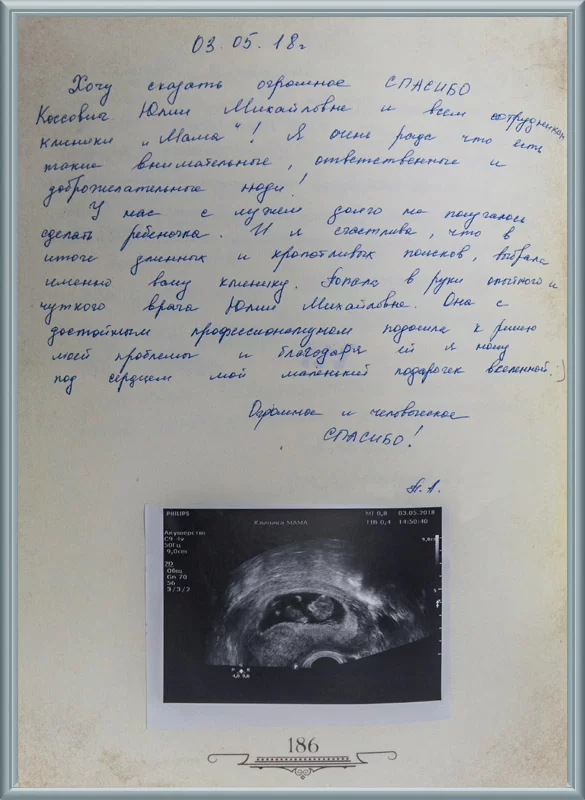 03.05.18г
Хочу сказать огромное СПАСИБО
Коссович Юлии Михайловне и всем сотрудникам
клиники „Мама"! Я очень рада что есть
такие внимательные, ответственные и
доброжелательные люди!
У нас с мужем долго не получалось
сделать ребеночка. И я счастлива, что в
итоге длинных и кропотливых поисков, выбрала
именно вашу клинику. Попала в руки опытного и
чуткого врача Юлии Михайловне. Она с
достойным профессионализмом подошла к
моей проблемы и благодаря ей я ношу
под сердцем мой маленький подарочек вселенной.:)
Огромное и человеческое
СПАСИБО!
П.А.
PHILIPS
MI 0,8 03.05.2018
Клиника МАМА
TIB 0,4 14:50:40
Акушерство
C9-4v
50Гц
9,0см
2D
Общ
Gn 70
56
3/3/2
186